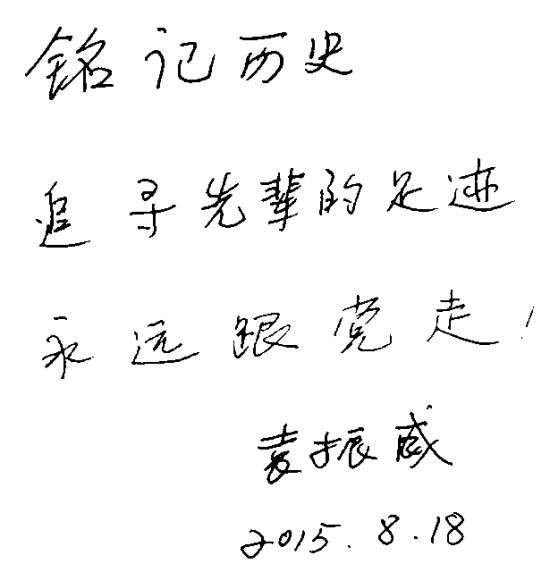 铭记历史
追寻先辈的足迹
永远跟党走！
袁振威
2015.8.18